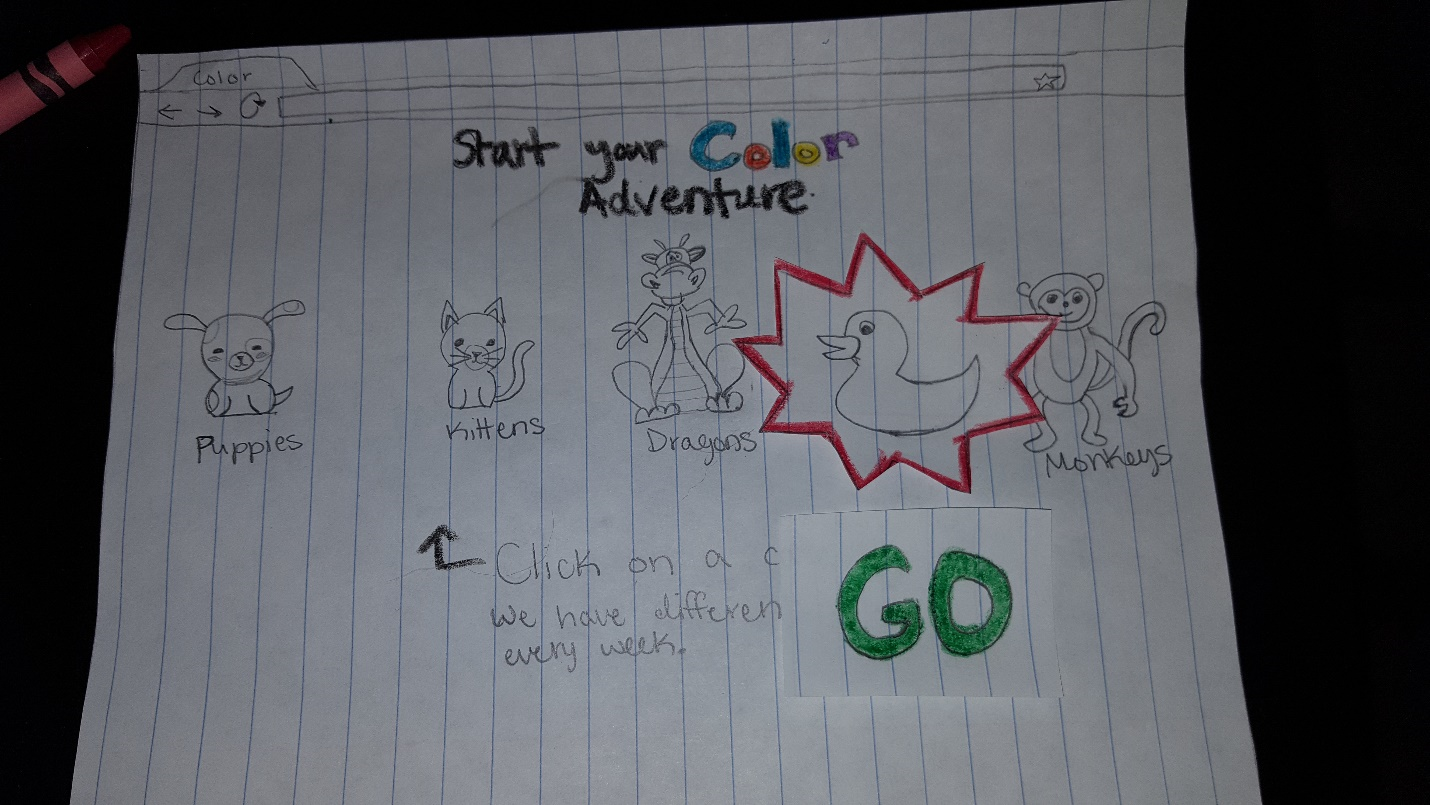 Color
Start your Color
Adventure.
Puppies
Kittens
Dragons
Monkeys
Click on a c
We have differen
every week.
GO